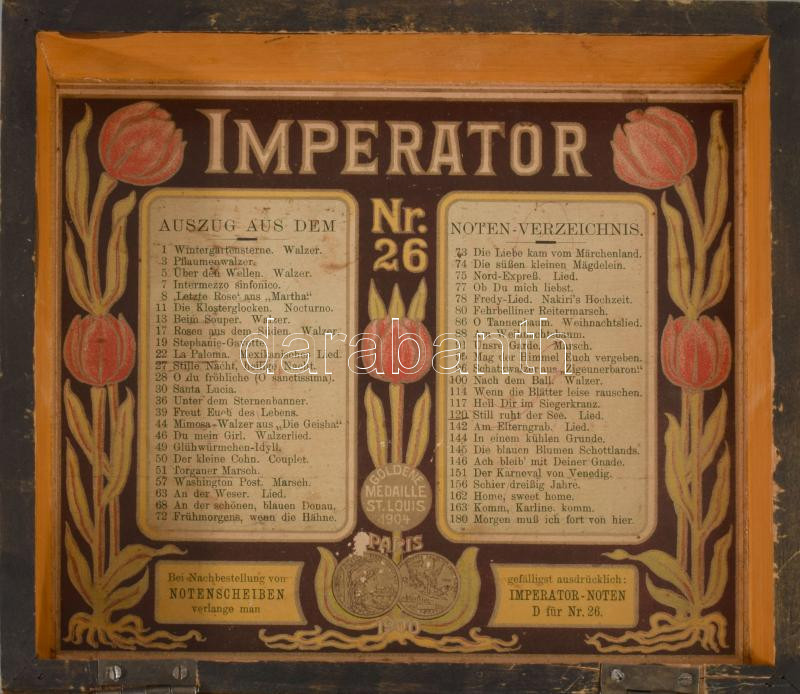 IMPERATOR
Nr.
26
AUSZUG AUS DEM
1 Wintergartensterne. Walzer.
3 Pflaumenwalzer.
5 Über den Wellen. Walzer.
7 Intermezzo sinfonico.
8 „Letzte Rose“ aus „Martha“
11 Die Klosterglocken. Nocturno.
13 Beim Souper. Walzer.
17 Rosen aus dem Süden. Walzer.
19 Stephanie-Gavotte.
22 La Paloma. Mexikanisches Lied.
27 Stille Nacht, Nacht.
28 O du fröhliche (O sanctissima).
30 Santa Lucia.
36 Unter dem Sternenbanner.
39 Freut Euch des Lebens.
44 Mimosa-Walzer aus „Die Geisha“
46 Du mein Girl. Walzerlied.
49 Glühwürmchen-Idyll.
50 Der kleine Cohn. Couplet.
51 Torgauer Marsch.
57 Washington Post. Marsch.
63 An der Weser. Lied.
68 An der schönen, blauen Donau.
72 Frühmorgens, wenn die Hähne.
NOTEN-VERZEICHNIS.
73 Die Liebe kam vom Märchenland.
74 Die süßen kleinen Mägdelein.
75 Nord-Expreß. Lied.
77 Ob Du mich liebst.
78 Fredy-Lied. Nakiri's Hochzeit.
80 Fehrbelliner Reitermarsch.
86 O Tannenbaum. Weihnachtslied.
88 Am Weihnachtsbaum.
Unsre Garde. Marsch.
Mag der Himmel Euch vergeben.
Schatzwalzer aus „Zigeunerbaron“
100 Nach dem Ball. Walzer.
114 Wenn die Blätter leise rauschen.
117 Heil Dir im Siegerkranz.
120 Still ruht der See. Lied.
142 Am Elterngrab. Lied.
144 In einem kühlen Grunde.
145 Die blauen Blumen Schottlands.
146 Ach bleib' mit Deiner Gnade.
151 Der Karneval von Venedig.
156 Schier dreißig Jahre.
162 Home, sweet home.
163 Komm, Karline, komm.
180 Morgen muß ich fort von hier.
GOLDENE
MEDAILLE
ST. LOUIS
1904
PARIS
1900
Bei Nachbestellung von
NOTENSCHEIBEN
verlange man
gefälligst ausdrücklich:
IMPERATOR-NOTEN
D für Nr. 26.
darabanth